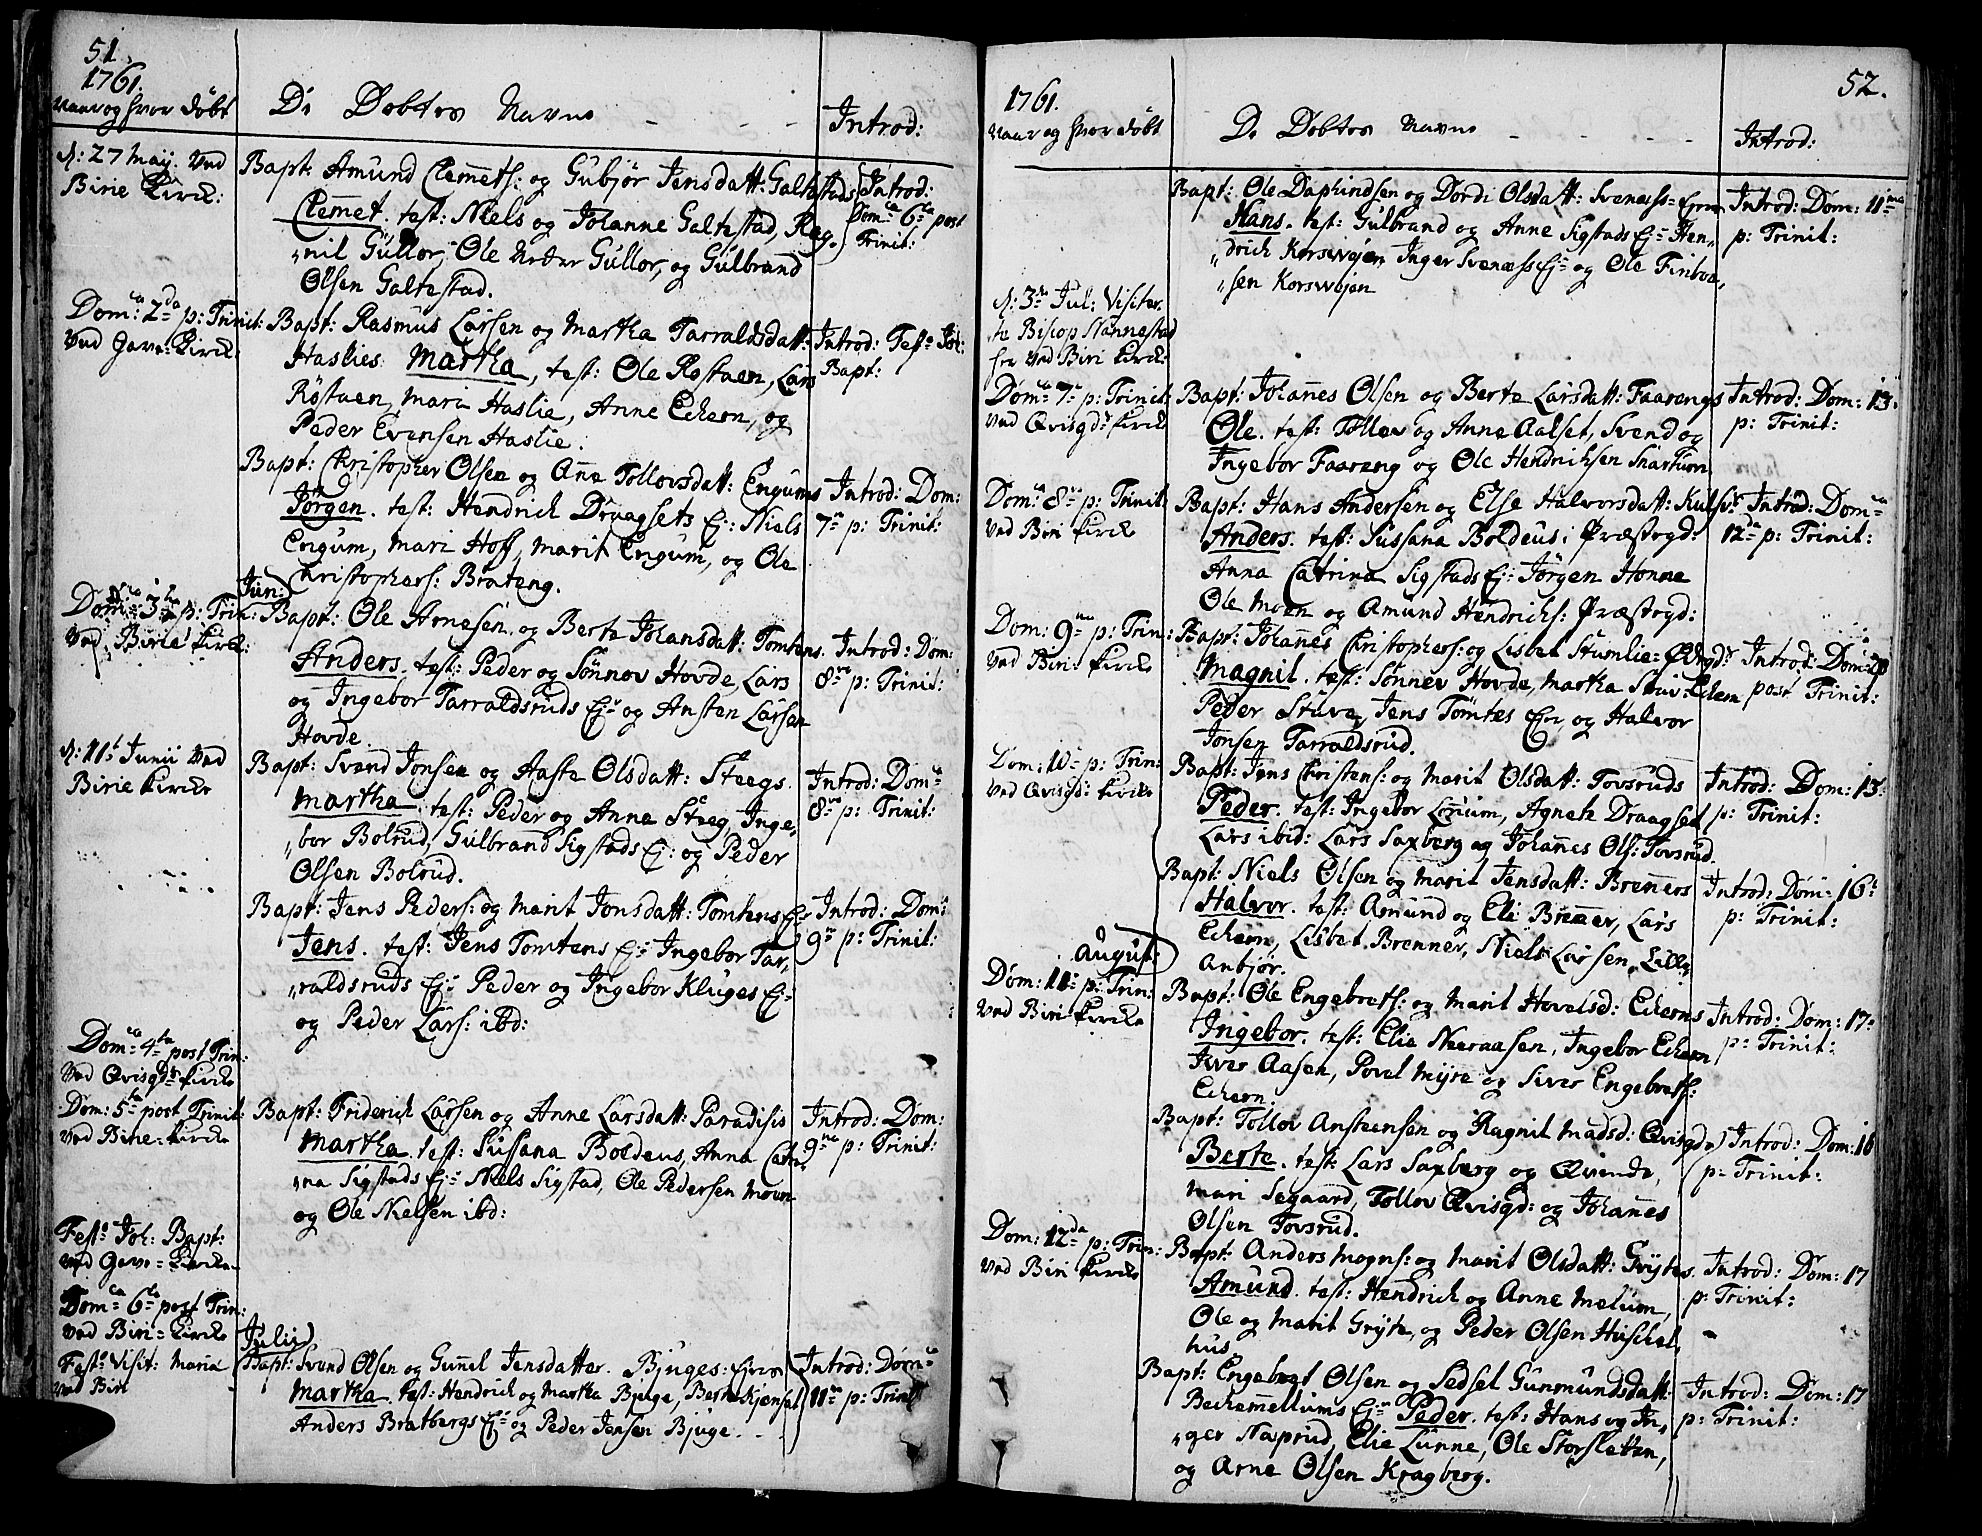 51.
1761.
Naar og hvor döbt
De Döbtes Navne - - -
Introd:
d: 27 Maij. Ved
Birie Kirck:
Bapt: Amund Clemets: og Gubjør Jensdatt: Galtestads
Clemet. test: Niels og Johanne Galtestad, Rag,
"nil Gullor, Ole Neder Gullor, og Gulbrand
Olsen Galtestad.
Introd:
Dom: 6ta post
Trinit:
Domca 2da p: Trinit:
Ved Gave-Kirck:
Bapt: Rasmus Larsen og Martha Tarraldsdatt:
Haslies. Martha, test: Ole Røstaen, Lars
Røstaen, Mari Haslie, Anne Eckern, og
Peder Evensen Haslie.
Introd: Festo Joh:
Bapt:
Bapt: Christopher Olsen og Ane Tollovsdatt: Engums
Jørgen. test: Hendrich Draagsets Ej: Niels
Engum, Mari Hoff, Marit Engum, og Ole
Christophers: Brateng.
Introd: Dom:
7de p: Trinit:
Jun:
Dom: 3tia p: Trin:
Ved Birie Kirck:
Bapt: Ole Arnesen og Berte Johansdatt: Tomtens.
Anders. test: Peder og Sönnov Hovde, Lars
og Ingebor Tarraldsruds Ej: og Ansten Larsen
Hovde.
Introd: Dom:
8va p: Trinit:
d: 11t Junii Ved
Birie Kircke
Bapt: Svend Jonsen og Aaste Olsdatt: Steegs.
Martha test: Peder og Anne Steeg, Inge,
"bor Bolrud, Gulbrand Sigstads Ej: og Peder
Olsen Bolrud.
Introd: Domca
8va p: Trinit:
Bapt: Jens Peders: og Marit Jonsdatt: Tomtens Ej:
Jens. test: Jens Tomtens Ej: Ingebor Tar,
"raldsruds Ej: Peder og Ingebor Kluges Ej:
og Peder Lars: ibd:
Introd: Dom:
9na p: Trinit:
Domca 4ta post Trin:
Ved Qvisgdr Kircke
Dom: 5ta post Trinit:
Ved Birie-Kircke
Bapt: Friderich Larsen og Anne Larsdatt: Paradisis
Martha. test: Sussana Boldeus, Anna Catri,
"na Sigstads Ej: Niels Sigstad, Ole Pedersen Moen
og Ole Nielsen ibd:
Introd: Dom:
9na p: Trinit:
Festo Joh: Bapt:
Ved Gave-Kircke
Domca 6ta post Trin:
Ved Biri-Kircke
Julii
Festo Visit: Maria
Ved Biri
Bapt: Svend Olsen og Gunil Jensdatter. Bjuges: Ejern
Martha. test: Hendrich og Martha Bjuge, Berte Kjensel
Anders Bratbergs Ej: og Peder Jensen Bjuge. - -
Introd: Domca
11ma p: Trinit
52.
1761.
Naar og hvor döbt
De Döbtes Navne - - -
Introd:
Bapt: Ole Daphindsen og Dordi Olsdatt: Svenæss-Ejern
Hans. test: Gulbrand og Anne Sigstads Ej: Hen,
"drich Korsvejen Inger Svenæss Ej: og Ole Finboe,
"sen Korsvejen
Introd: Dom: 11ma
p: Trinit:
d: 3de Jul: Visiter,
te Biscop Nannestad
her Ved Biri Kirck:
Domca 7ma p: Trinit:
Ved Qvisgdr Kirck
Bapt: Johanes Olsen og Berte Larsdatt: Faarengs
Ole. test: Tollev og Anne Aalset, Svend og
Ingebor Faareng og Ole Hendrichsen Snartum
Introd: Dom: 13
p: Trinit:
Domca 8va p: Trinit:
Ved Biri Kircke
Bapt: Hans Andersen og Else Halvorsdatt:
Anders. test: Sussana Boldeus i Præstegd:
Anna Catrina Sigstads Ej: Jørgen Honne
Ole Moen og Amund Hendrichs: Præstegd:
Introd: Domca
12da p: Trinit:
Dom: 9na p: Trin:
Ved Biri Kircke
Bapt: Johanes Christophers: og Lisbet Stumlie-Ødegdr
Magnil. test: Sønnev Hovde, Martha Eckern
Peder Stuve, Jens Tömtes Ejer, og Halvor
Jonsen Tarraldsrud.
Introd: Dom: 20
post Trinit:
Dom: 10 p: Trin:
Ved Qvisgd: Kircke
Bapt: Jens Christens: og Marit Olsdatt: Tovsruds
Peder. test: Ingebor Lonium, Agnete Draagset
Lars ibid: Lars Saxberg og Johannes Ols: Tovsrud.
Introd: Dom: 13
p: Trinit:
Bapt: Niels Olsen og Marit Jensdatt: Breners
Halvor. test: Amund og Eli Brenner, Lars
Eckern, Lisbet Brenner, Niels Larsen, Lille
Anbjør.
Introd: Dom: 16
p: Trinit:
August:
Dom: 11 p: Trin:
Ved Biri Kircke
Bapt: Ole Engebrets: og Marit Hovelsd: Eckerns
Ingebor. test: Elie Neeraasen, Ingebor Eckern
Iver Aasen, Povel Myre og Siver Engebrets:
Eckern.
Introd: Dom: 17
p: Trinit:
Bapt: Tollov Ansteensen og Ragnil Madsd: Qvisgdr
Berte. test: Lars Saxberg og Qvinde,
Mari Segaard, Tollov Qvisgd: og Johannes
Olsen Tovsrud.
Introd: Dom: 16
p: Trinit:
Dom: 12da p: Trin:
Ved Biri Kircke
Bapt: Anders Mogns: og Marit Olsdatt: Grytes.
Amund. test: Hendrich og Anne Melum,
Ole og Marit Gryte, og Peder Olsen Huschel,
hus.
Introd: Dom: 17
p: Trinit:
Bapt: Engebregt Olsen og Sedsel Gunmundsdatt:
Beckemellums Ej: Peder. test: Hans og In,
"ger Næprud, Elie Lunne, Ole Storsletten,
og Arne Olsen Kragberg.
Introd: Dom: 17
p: Trinit: